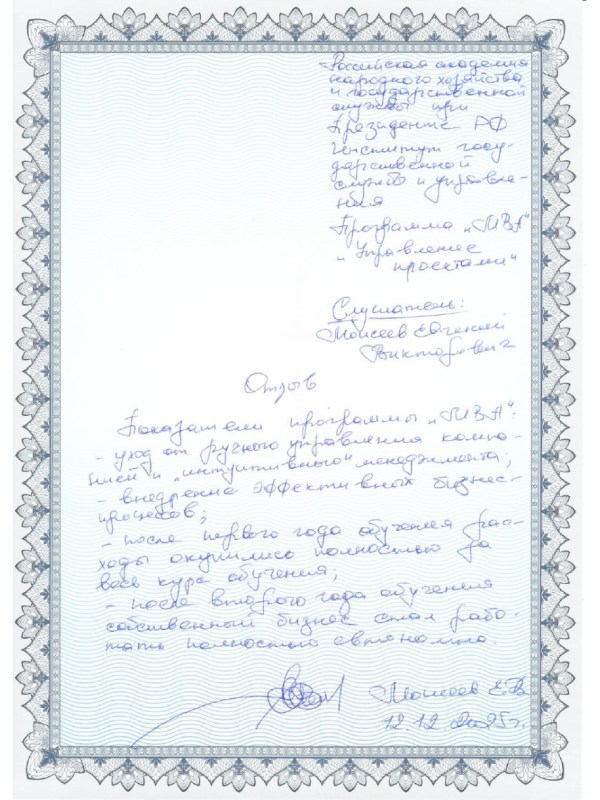 Российская академия
народного хозяйства
и государственной
службы при
Президенте РФ
Институт госу-
дарственной
службы и управле-
ния
Программа „МВА“
„Управление
проектами“
Слушатель:
Моисеев Евгений
Викторович
Отзыв
Показатели программы „МВА“:
- уход от ручного управления компа-
нией и „интуитивного“ менеджмента;
- внедрение эффективных бизнес-
процессов;
- после первого года обучения рас-
ходы окупились полностью за
весь курс обучения;
- после второго года обучения
собственный бизнес стал рабо-
тать полностью автономно.
Моисеев Е.В.
12.12.2025г.